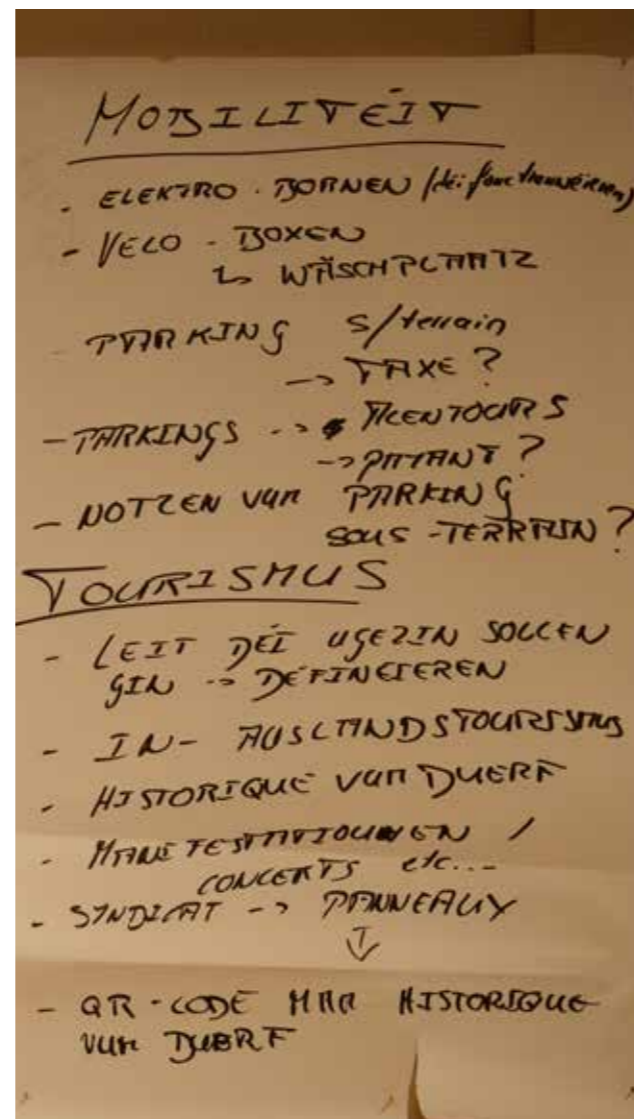 MOBILITÉIT
- ELEKTRO - BORNEN (déi fonctionnéieren)
- VELO - BOXEN
↳ WÄSCHPLAATZ
- PARKING s/terrain
-> TAXE ?
- PARKINGS -> ALENTOURS
-> PAYANT ?
- NOTZEN VUM PARKING
SOUS-TERRAIN ?
TOURISMUS
- LEIT DÉI UGEZIN SOLLEN
GIN -> DÉFINEIEREN
- IN- AUSLANDSTOURISMUS
- HISTORIQUE VUM DUERF
- MANIFESTATIOUNEN /
CONCERTS etc...
- SYNDICAT -> PANNEAUX
↓
- QR-CODE MAM HISTORIQUE
VUM DUERF